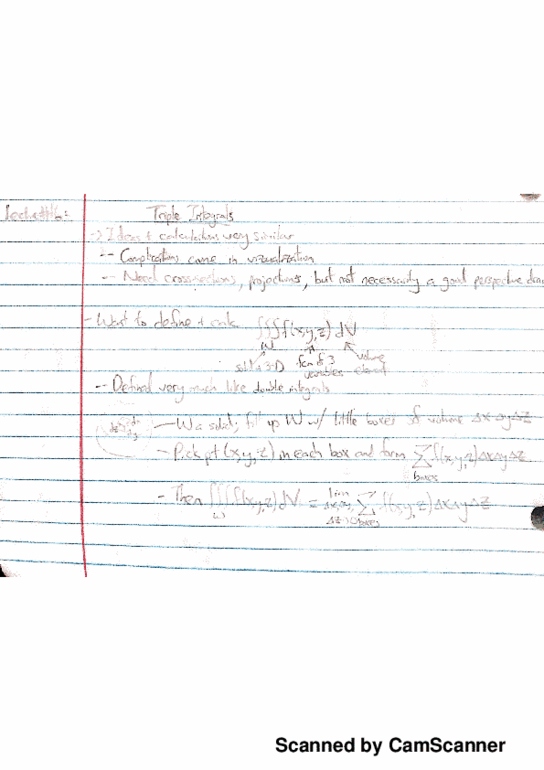 Triple Integrals
-> Idea + calculations very similar
-- Complications come in visualization
- Need crosssections, projections, but not necessarily a good perspective
- Want to define + calc ∫∫∫ f(x,y,z) dV
W
solid 3-D fcn of 3 variables volume element
-- Defined very much like double integrals
- W a solid; fill up W w/ little boxes of volume ΔxΔyΔz
- Pick pt (x,y,z) in each box and form Σ f(x,y,z)ΔxΔyΔz
boxes
- Then ∫∫∫ f(x,y,z) dV = lim Σ f(x,y,z)ΔxΔyΔz
W boxes
Scanned by CamScanner